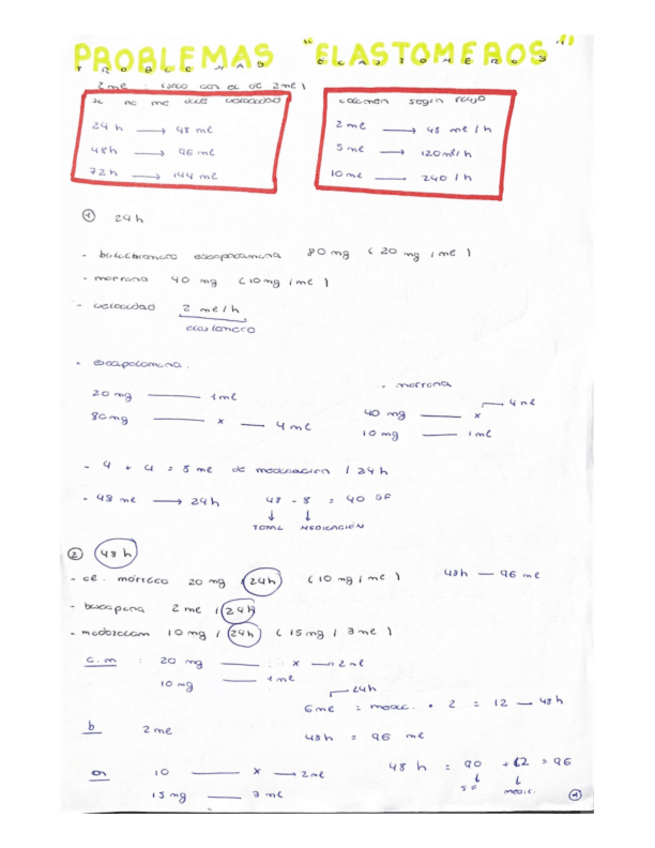 PROBLEMAS "ELASTOMEROS"
2 me
si no me dice velocidad
24 h → 48 ml
48 h → 96 ml
72 h → 144 ml
volumen según flujo
2 ml → 48 ml / h
5 ml → 120 ml / h
10 ml → 240 / h
① 24 h
- escopolamina 80 mg ( 20 mg / ml )
- morfina 40 mg ( 10 mg / ml )
- velocidad 2 ml / h
elastómero
· escopolamina.
20 mg — 1 ml
80 mg — x — 4 ml
· morfina
40 mg — x — 4 ml
10 mg — 1 ml
- 4 + 4 = 8 ml de medicación / 24 h
- 48 ml → 24 h 48 - 8 = 40 SF
TOTAL MEDICACIÓN
② 48 h
- cl. mórfico 20 mg / 24h ( 10 mg / ml ) 48h — 96 ml
- buscapina 2 ml / 24h
- midazolam 10 mg / 24h ( 15 mg / 3 ml )
c.m : 20 mg — x → 2 ml
10 mg — 1 ml
24h
6 ml = medic. · 2 = 12 — 48h
b 2 ml
48h = 96 ml
m 10 — x → 2 ml
15 mg — 3 ml
48 h = 90 + 12 = 96
SF medic.
①